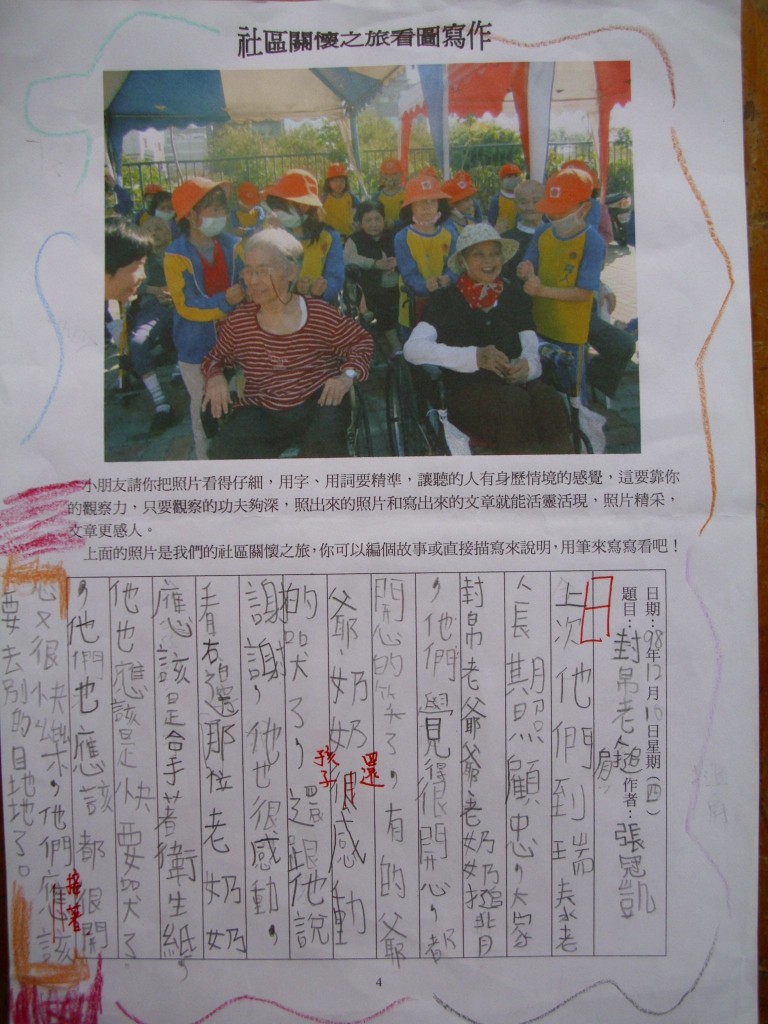 社區關懷之旅看圖寫作
小朋友請你把照片看得仔細，用字、用詞要精準，讓聽的人有身歷情境的感覺，這要靠你
的觀察力，只要觀察的功夫夠深，照出來的照片和寫出來的文章就能活靈活現，照片精采，
文章更感人。
上面的照片是我們的社區關懷之旅，你可以編個故事或直接描寫來說明，用筆來寫寫看吧！
日期：98年12月10日星期（四）
題目：封帛老搥肩 作者：張冠凱
上次他們到瑞泰老
人長期照顧忠心，大家
封帛老爺爺、老奶奶搥背
，他們覺得很開心，都
開心的笑了，有的爺
爺、奶奶很感動
還
孩子
的哭了，還跟他說
謝謝，他也很感動，
看右邊那位老奶奶
應該是合手著衛生紙，
他也應該是快要哭了，
，他們也應該都很開
心又很快樂，他們應該
要去別的目地地了。
4